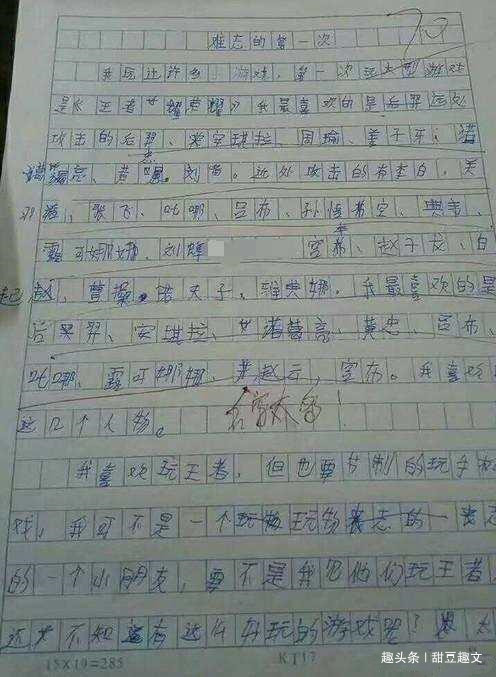 难忘的第一次
70
我玩过许多 游戏,第一次玩大型游戏
是《王者荣耀》我最喜欢的是后羿远处
攻击的后羿、安琪拉、周瑜、姜子牙、诸
葛亮、黄忠、刘备。近处攻击的有李白、关
羽、张飞、哪吒、吕布、孙悟空、典韦、
露娜娜、刘 宫本、赵子龙、白
起、曹操、老夫子、雅典娜。我最喜欢的是
后羿、安琪拉、诸葛亮、黄忠、吕布、
哪、露娜娜、赵云、宫布。我喜欢
这几个人物。
名字太多!
我喜欢玩王者,但也要节制的玩手机
戏,我可不是一个玩物丧志的
的一个小朋友,要不是我见他们玩王者
还不知道有这么好玩的游戏呢?
15×19=285
KT17
趣头条 | 甜豆趣文